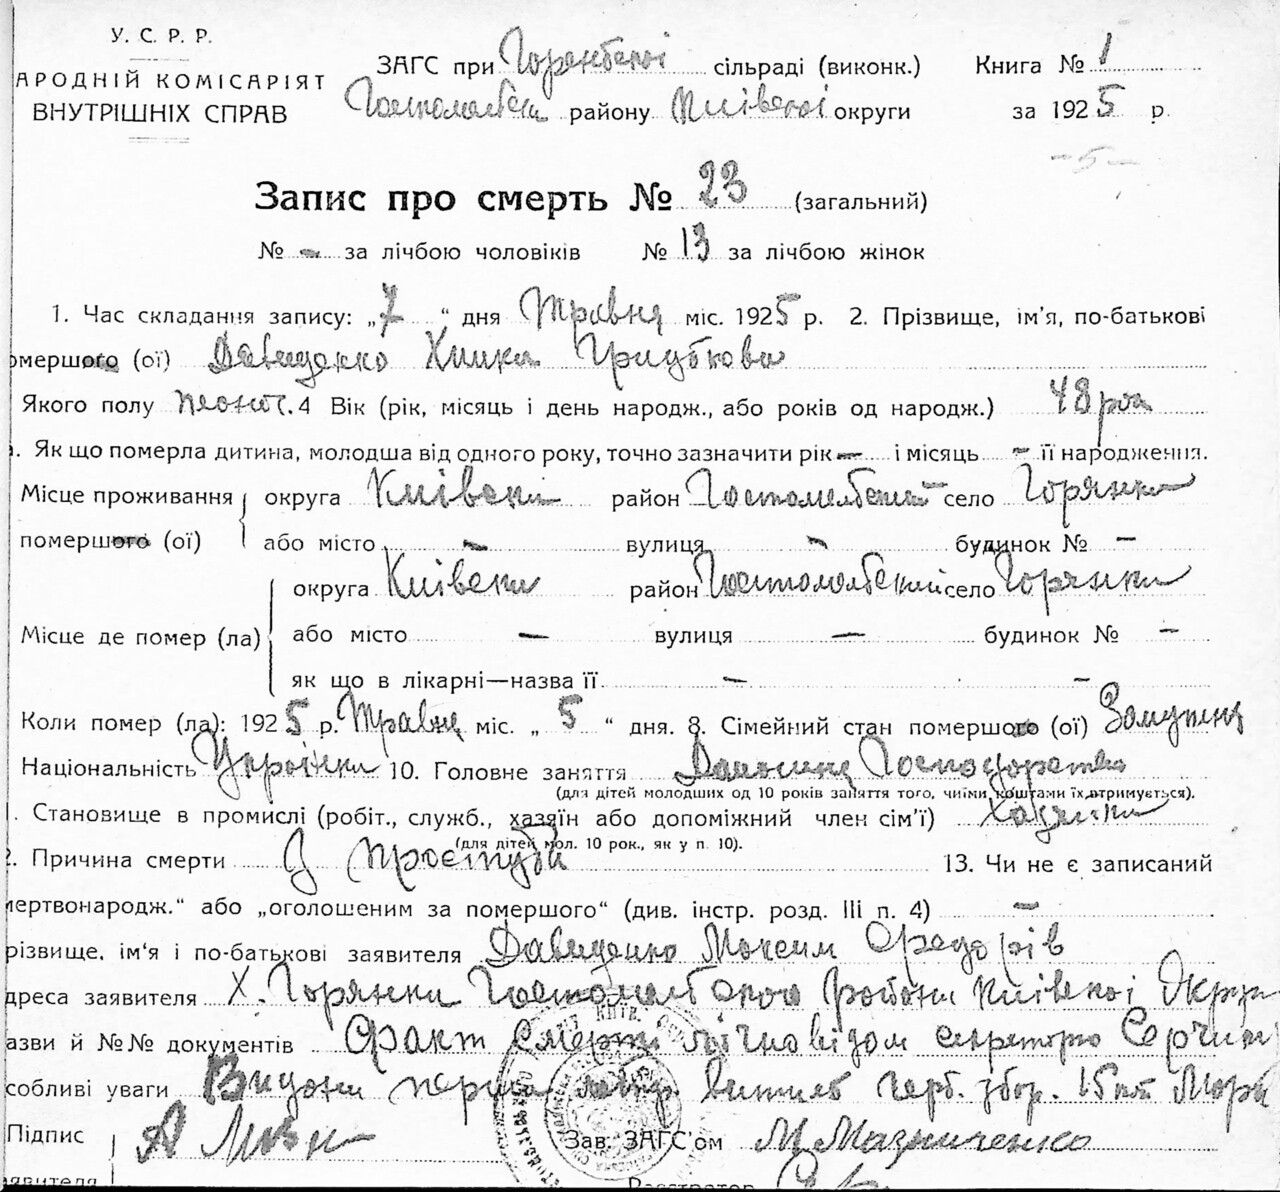 У. С. Р. Р.
АРОДНІЙ КОМІСАРІЯТ
ВНУТРІШНІХ СПРАВ
ЗАГС при Горенської сільраді (виконк.)
Гостомельськ району Київської округи
Книга № 1
за 1925 р.
- 5 -
Запис про смерть № 23 (загальний)
№ - за лічбою чоловіків № 13 за лічбою жінок
1. Час складання запису: „7 “ дня Травня міс. 1925 р. 2. Прізвище, ім'я, по-батькові
омершого (ої) Давиденко Химка
Якого полу жоноч. 4 Вік (рік, місяць і день народж., або років од народж.) 48 рок
. Як що померла дитина, молодша від одного року, точно зазначити рік — і місяць - її народження.
Місце проживання
помершого (ої)
округа Київська район Гостомельський село Горянка
або місто - вулиця - будинок № -
Місце де помер (ла)
округа Київська район Гостомельський село Горянка
або місто — вулиця — будинок № -
як що в лікарні—назва її. — -
Коли помер (ла): 1925 р. Травня міс. „ 5 “ дня. 8. Сімейний стан помершого (ої) Замужня
Національність Українка 10. Головне заняття Домашнє Господарство
(для дітей молодших од 10 років заняття того, чиїми коштами їх втримується).
. Становище в промислі (робіт., служб., хазяїн або допоміжний член сім'ї) Хазяйка
(для дітей мол. 10 рок., як у п. 10).
2. Причина смерти З простуди 13. Чи не є записаний
мертвонародж.“ або „оголошеним за помершого“ (див. інстр. розд. III п. 4) -
різвище, ім'я і по-батькові заявителя Давиденко Максим Федорів
дреса заявителя Х. Горянка Гостомельського району Київської Округи
азви й №№ документів Факт смерти секретарю
собливі уваги Видано герб. збор. 15 коп
Підпис
аявителя
Зав. ЗАГС'ом М. Мазниченко
Реєстратор